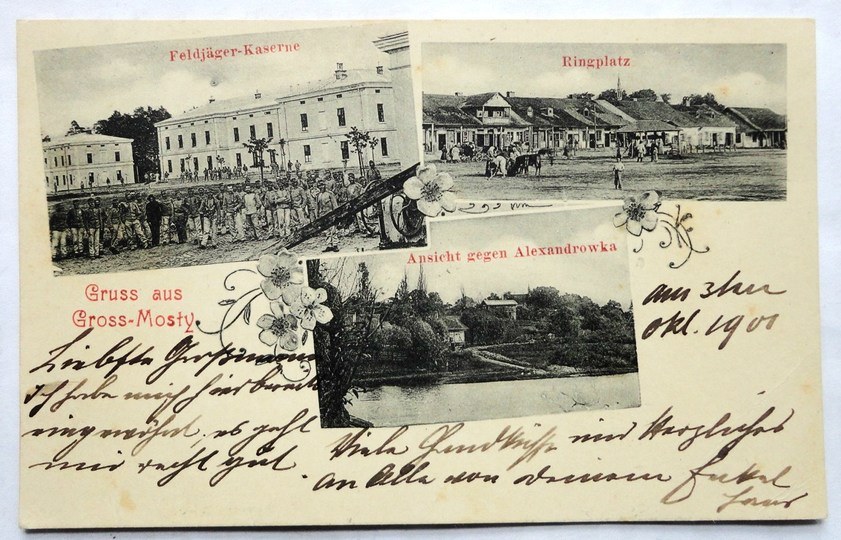 Feldjäger-Kaserne
Ringplatz
Ansicht gegen Alexandrowka
Gruss aus
Gross-Mosty.
am 3ten
Okt. 1901
Liebste Großmama
Ich habe mich hier bereits
eingewöhnt, es geht
mir recht gut.
Viele Handküsse und Herzliches
an Alle von deinem Enkel
Hans